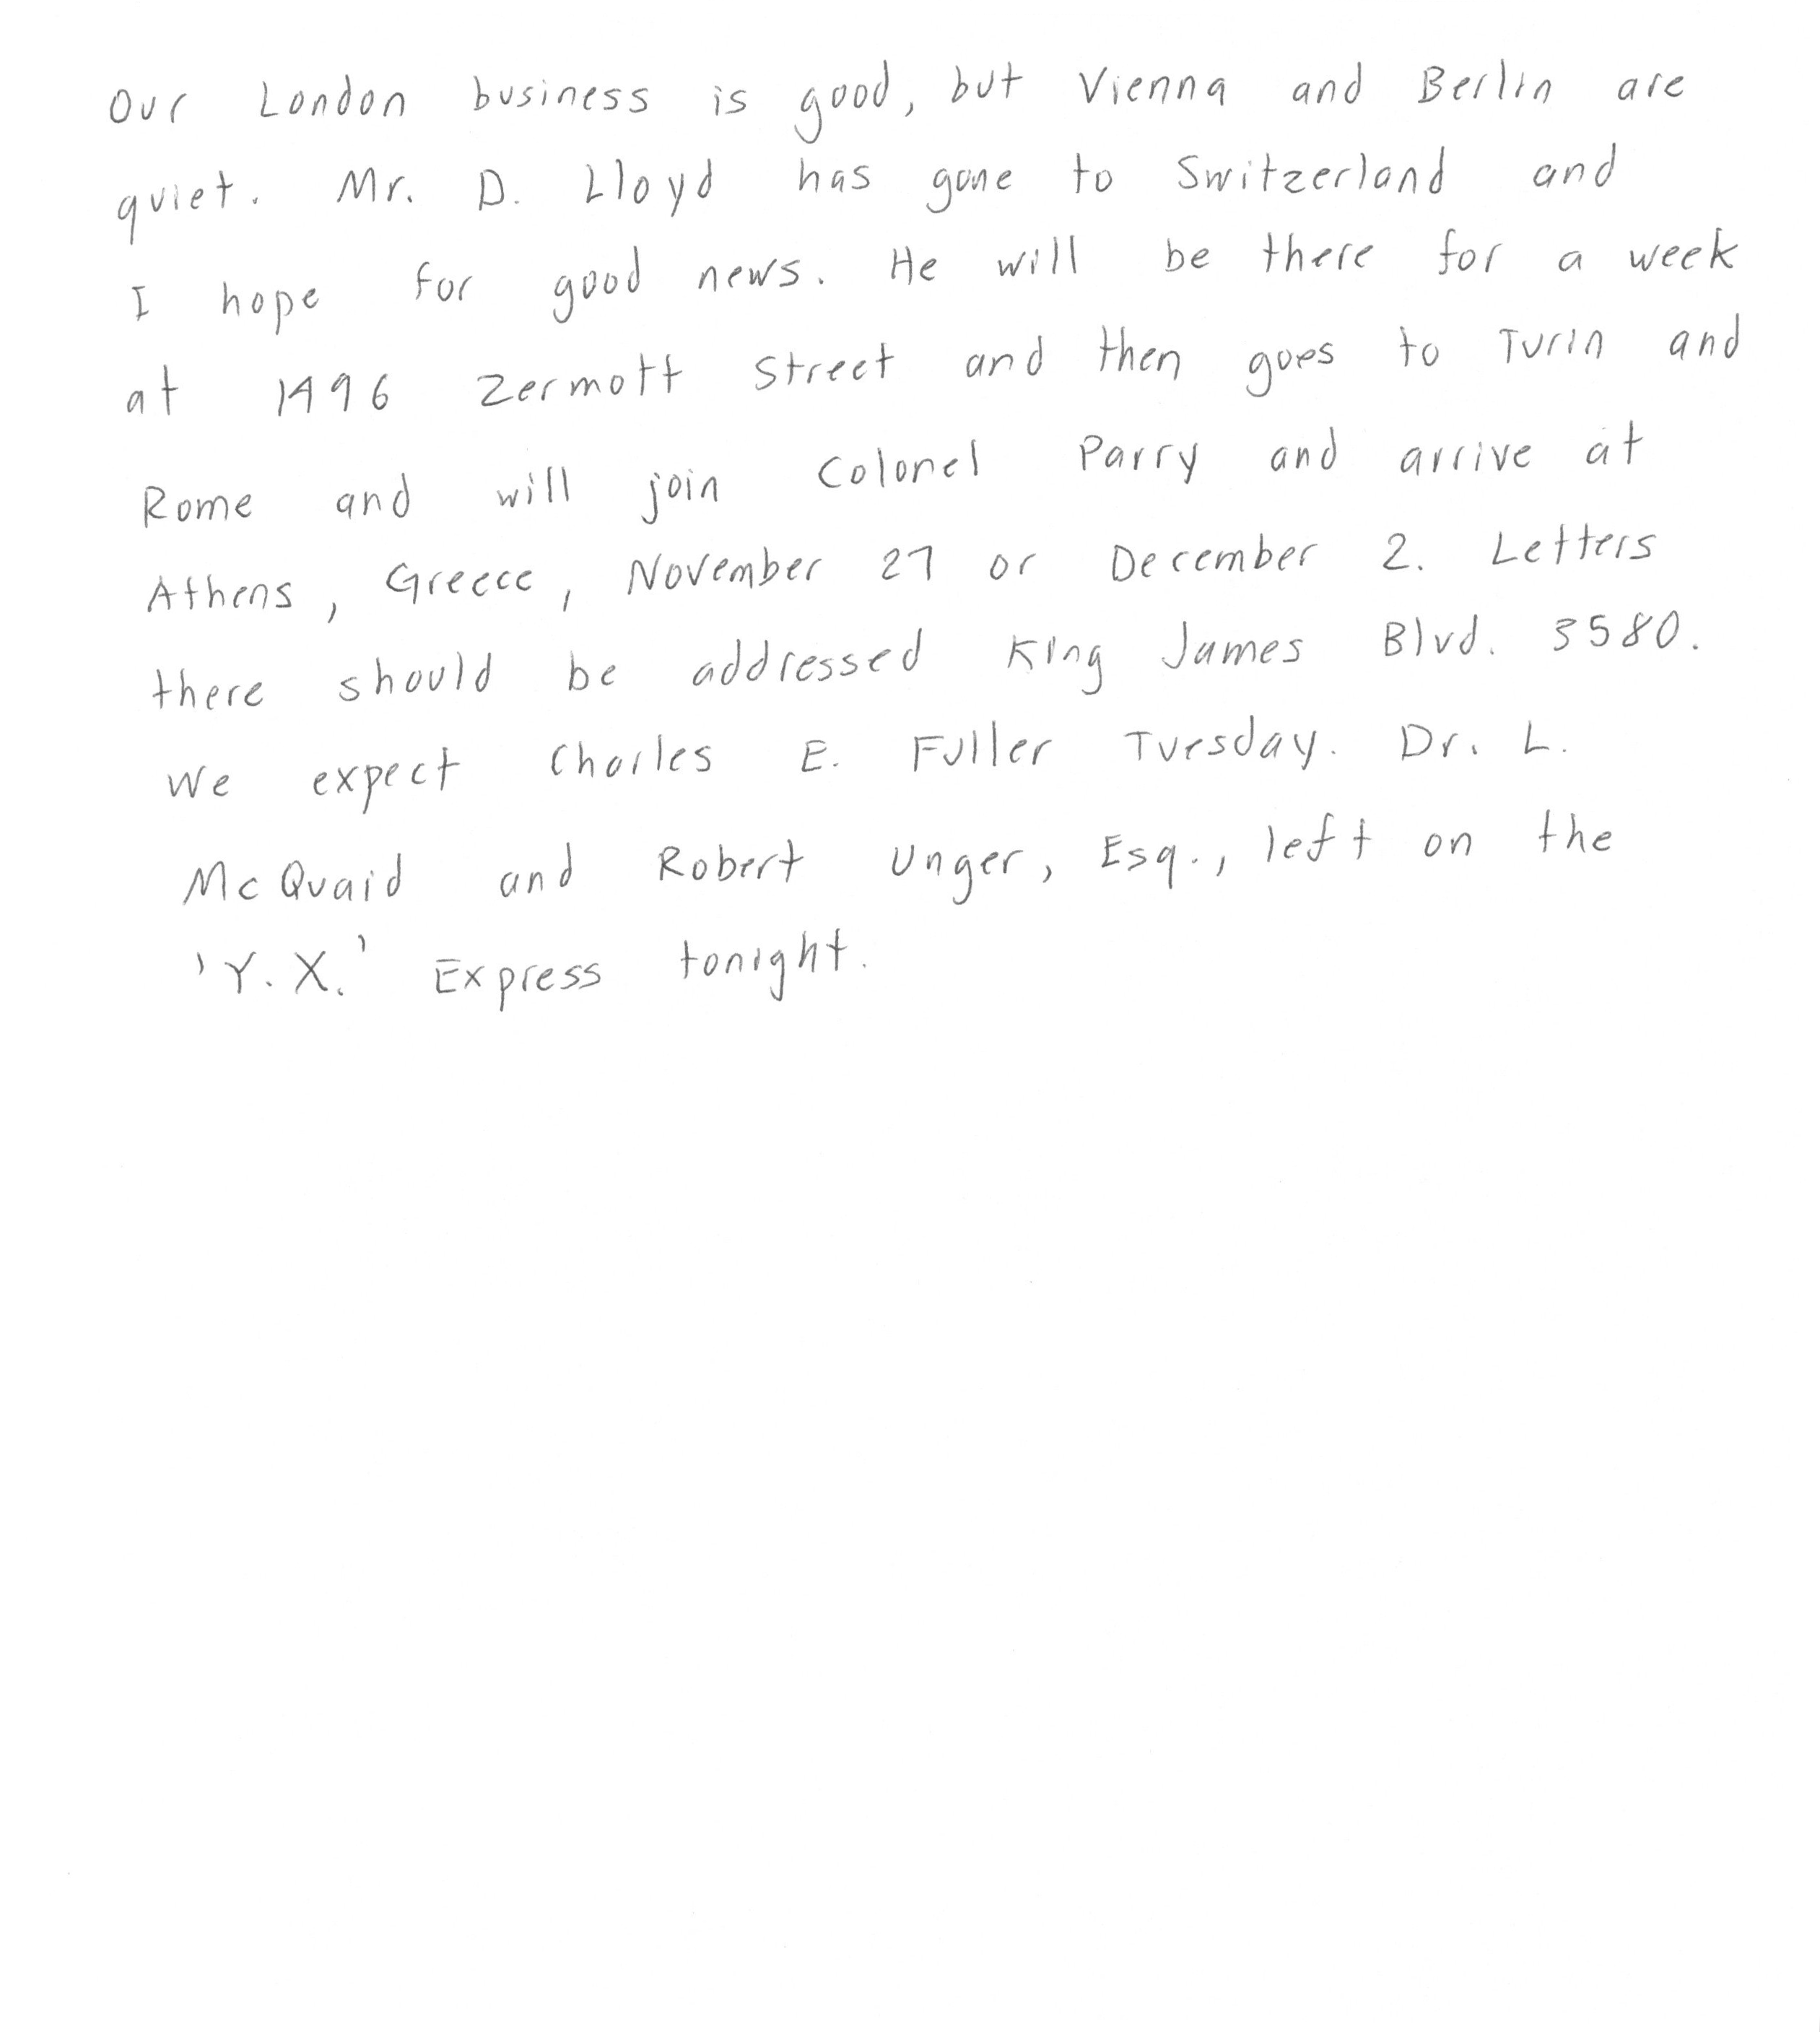 Our London business is good, but Vienna and Berlin are
quiet. Mr. D. Lloyd has gone to Switzerland and
I hope for good news. He will be there for a week
at 1496 Zermott Street and then goes to Turin and
Rome and will join Colonel Parry and arrive at
Athens, Greece, November 27 or December 2. Letters
there should be addressed King James Blvd. 3580.
We expect Charles E. Fuller Tuesday. Dr. L.
McQuaid and Robert Unger, Esq., left on the
'Y.X.' Express tonight.